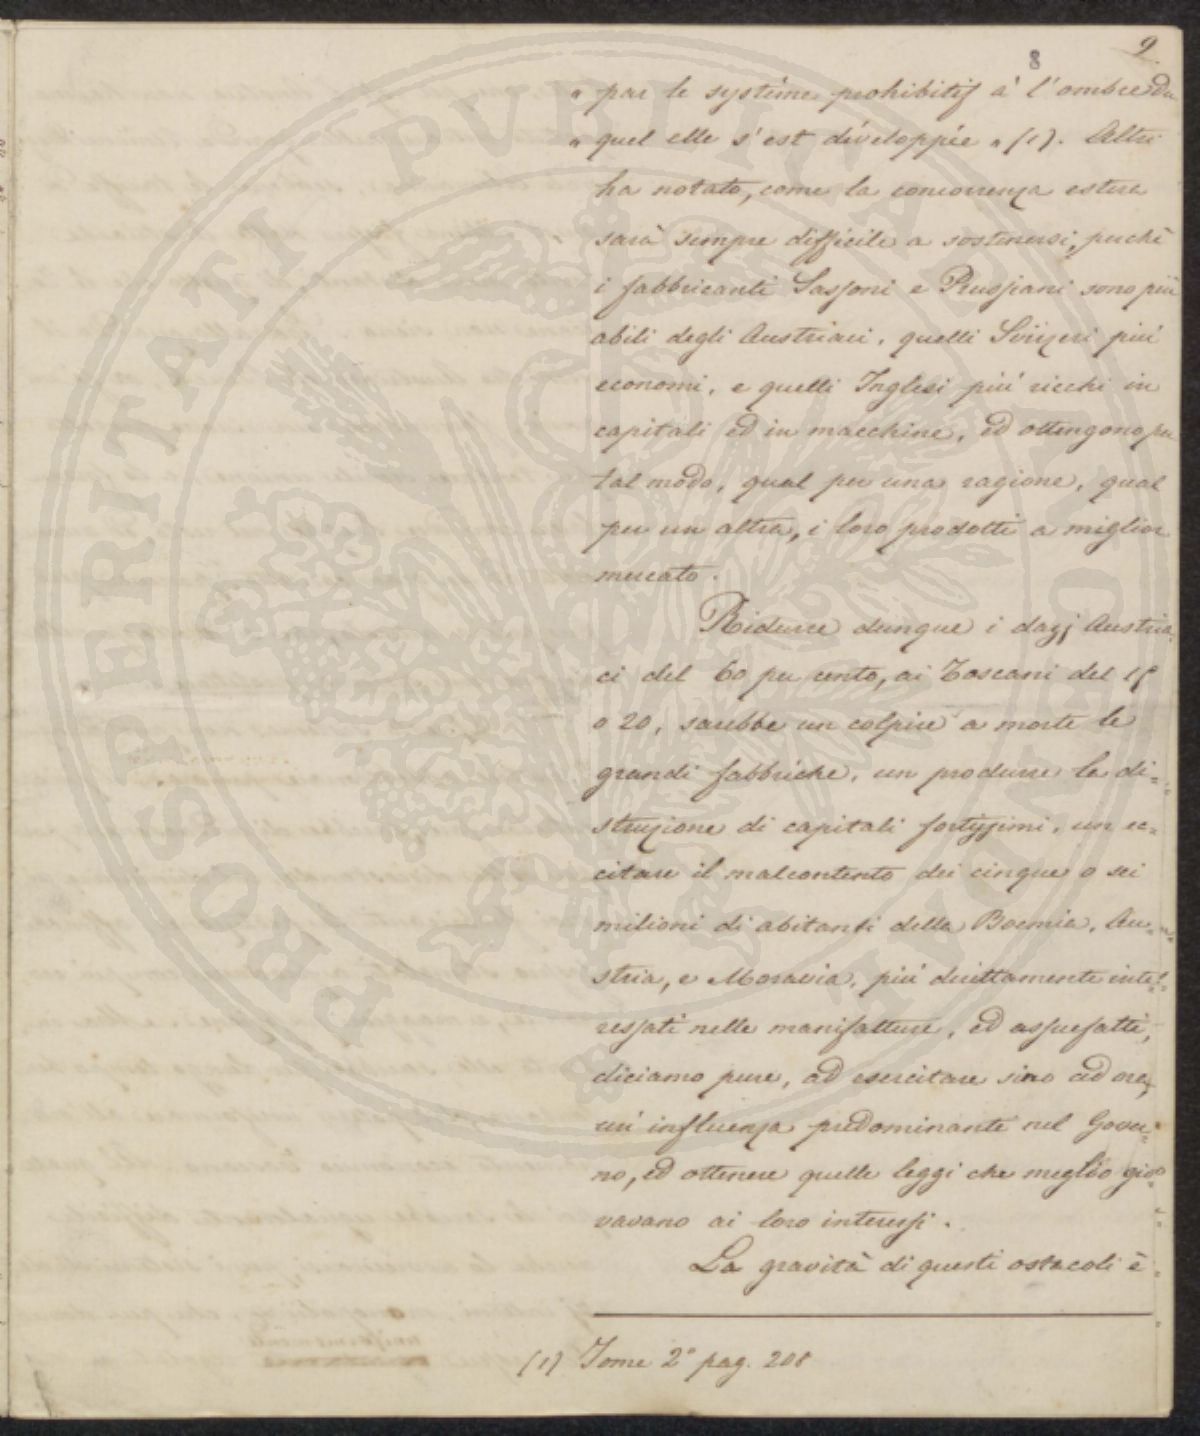 8 9.
" par le systéme prohibitif à l'ombre du
" quel elle s'est développée " (1). Altri
ha notato, come la concorrenza estera
sarà sempre difficile a sostenersi, perchè
i fabbricanti Sassoni e Prussiani sono più
abili degli Austriaci, quelli Svizzeri più
economi, e quelli Inglesi più ricchi in
capitali ed in macchine, ed ottengono per
tal modo, qual per una ragione, qual
per un altra, i loro prodotti a miglior
mercato.
Ridurre dunque i dazj Austria-
ci del 60 per cento, ai Toscani del 15
o 20, sarebbe un colpire a morte le
grandi fabbriche, un produrre la di-
struzione di capitali fortissimi, un ec-
citare il malcontento dei cinque o sei
milioni di abitanti della Boemia, Au-
stria, e Moravia, più direttamente inte-
ressati nelle manifatture, ed assuefatti,
diciamo pure, ad esercitare sino ad ora,
un' influenza predominante nel Gover-
no, ed ottenere quelle leggi che meglio gio-
vavano ai loro interessi.
La gravità di questi ostacoli è
(1) Tome 2° pag. 208
PROSPERITATI PUBLICAE